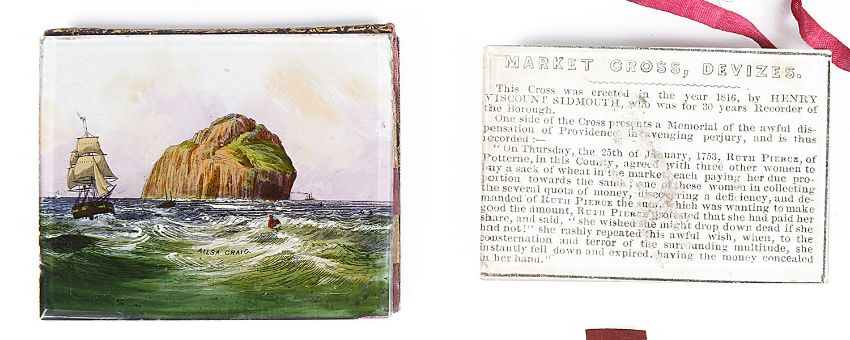 AILSA CRAIG.
MARKET CROSS, DEVIZES.
This Cross was erected in the year 1816, by HENRY
VISCOUNT SIDMOUTH, who was for 30 years Recorder of
the Borough.
One side of the Cross presents a Memorial of the awful dis-
pensation of Providence in avenging perjury, and is thus
recorded :—
"On Thursday, the 25th of January, 1753, RUTH PIERCE, of
Potterne, in this County, agreed with three other women to
buy a sack of wheat in the market, each paying her due pro-
portion towards the same; one of these women in collecting
the several quota of money, discovering a deficiency, and de-
manded of RUTH PIERCE the sum which was wanting to make
good the amount, RUTH PIERCE protested that she had paid her
share, and said, "she wished she might drop down dead if she
had not!" she rashly repeated this awful wish, when, to the
consternation and terror of the surrounding multitude, she
instantly fell down and expired, having the money concealed
in her hand."